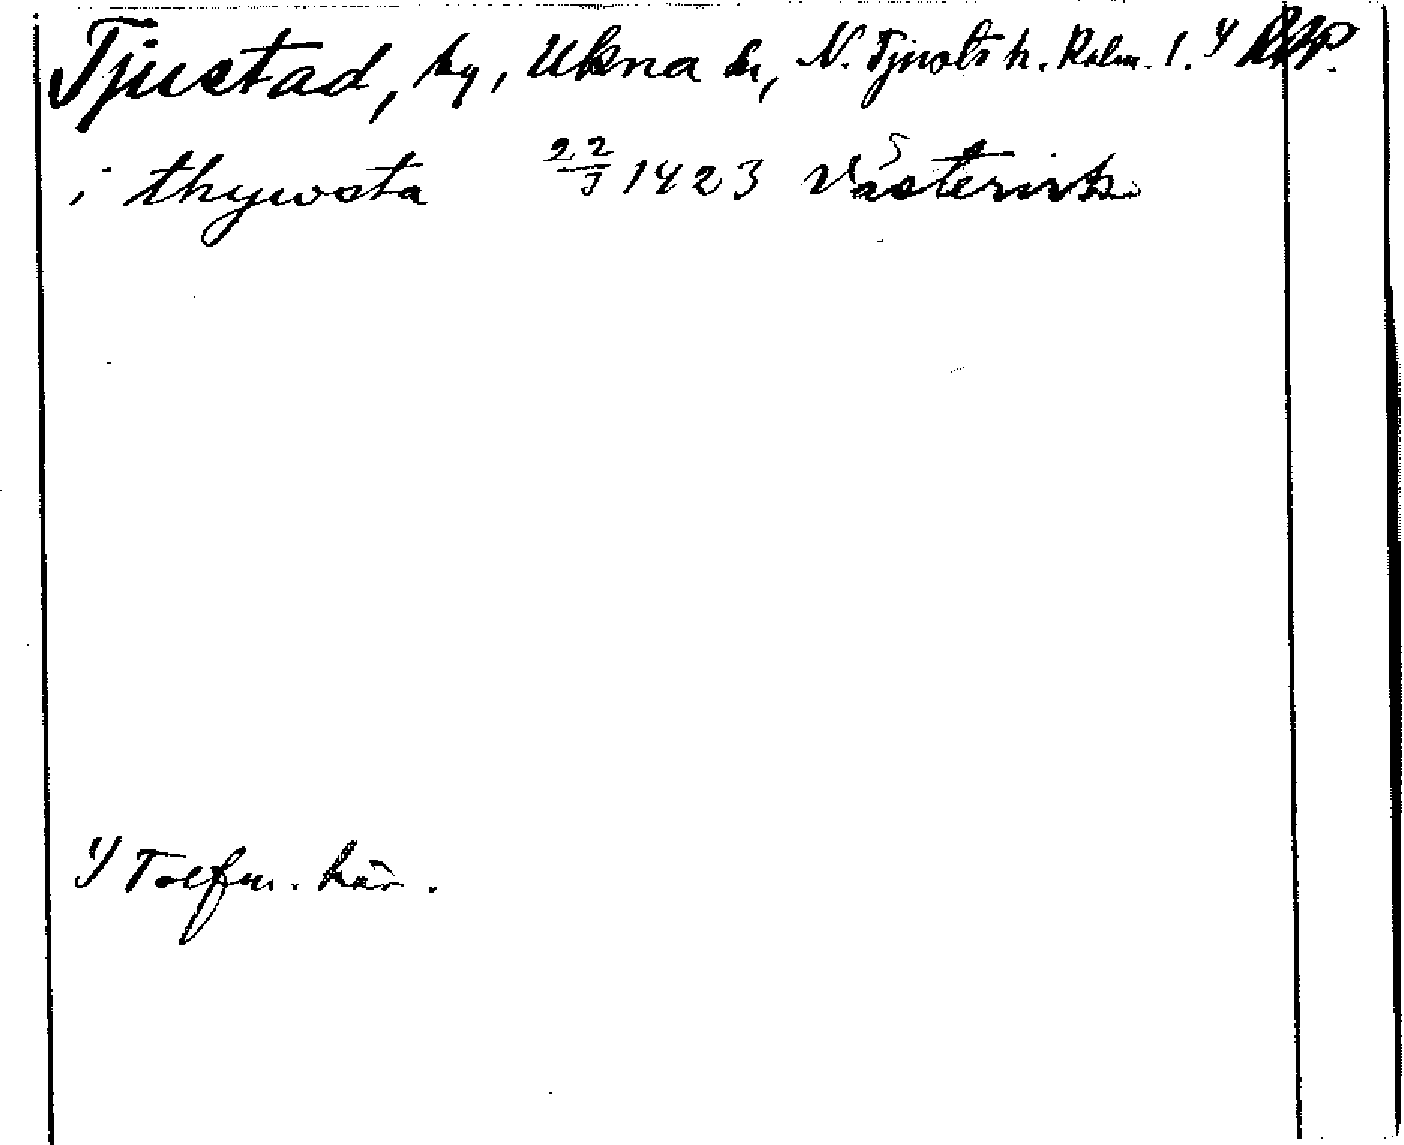 Tjustad, by, Ukna sn, N. Tjusts h. Kalm. l. 1) RAp.
i thywsta 22/3 1423 Västervik
1) Tolfm. här.